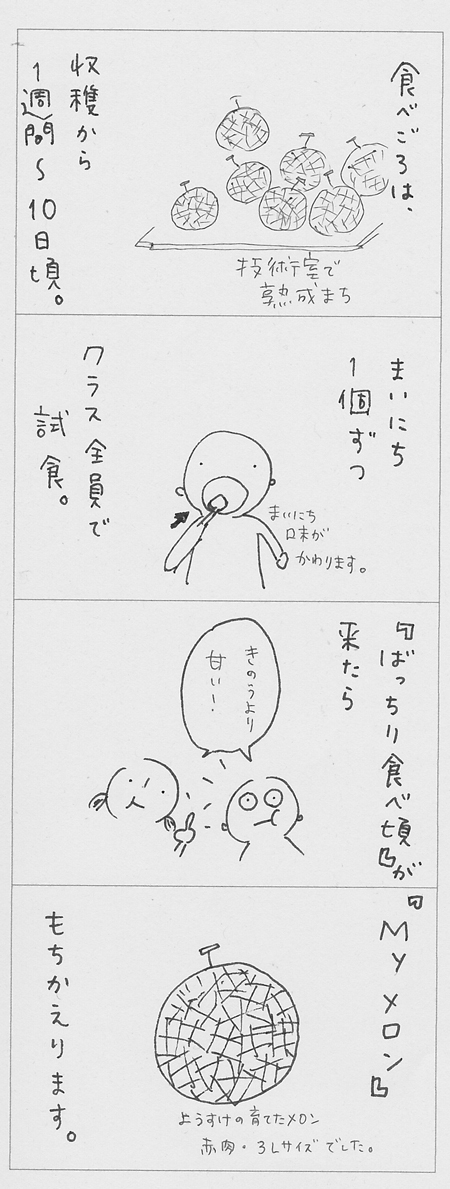 食べごろは、
技術室で
熟成まち
収穫から
1週間〜
10日頃。
まいにち
1個ずつ
まいにち
味が
かわります。
クラス全員で
試食。
『ばっちり食べ頃』が
来たら
きのうより
甘い!
『Myメロン』
ようすけの育てたメロン
赤肉・3Lサイズでした。
もちかえります。